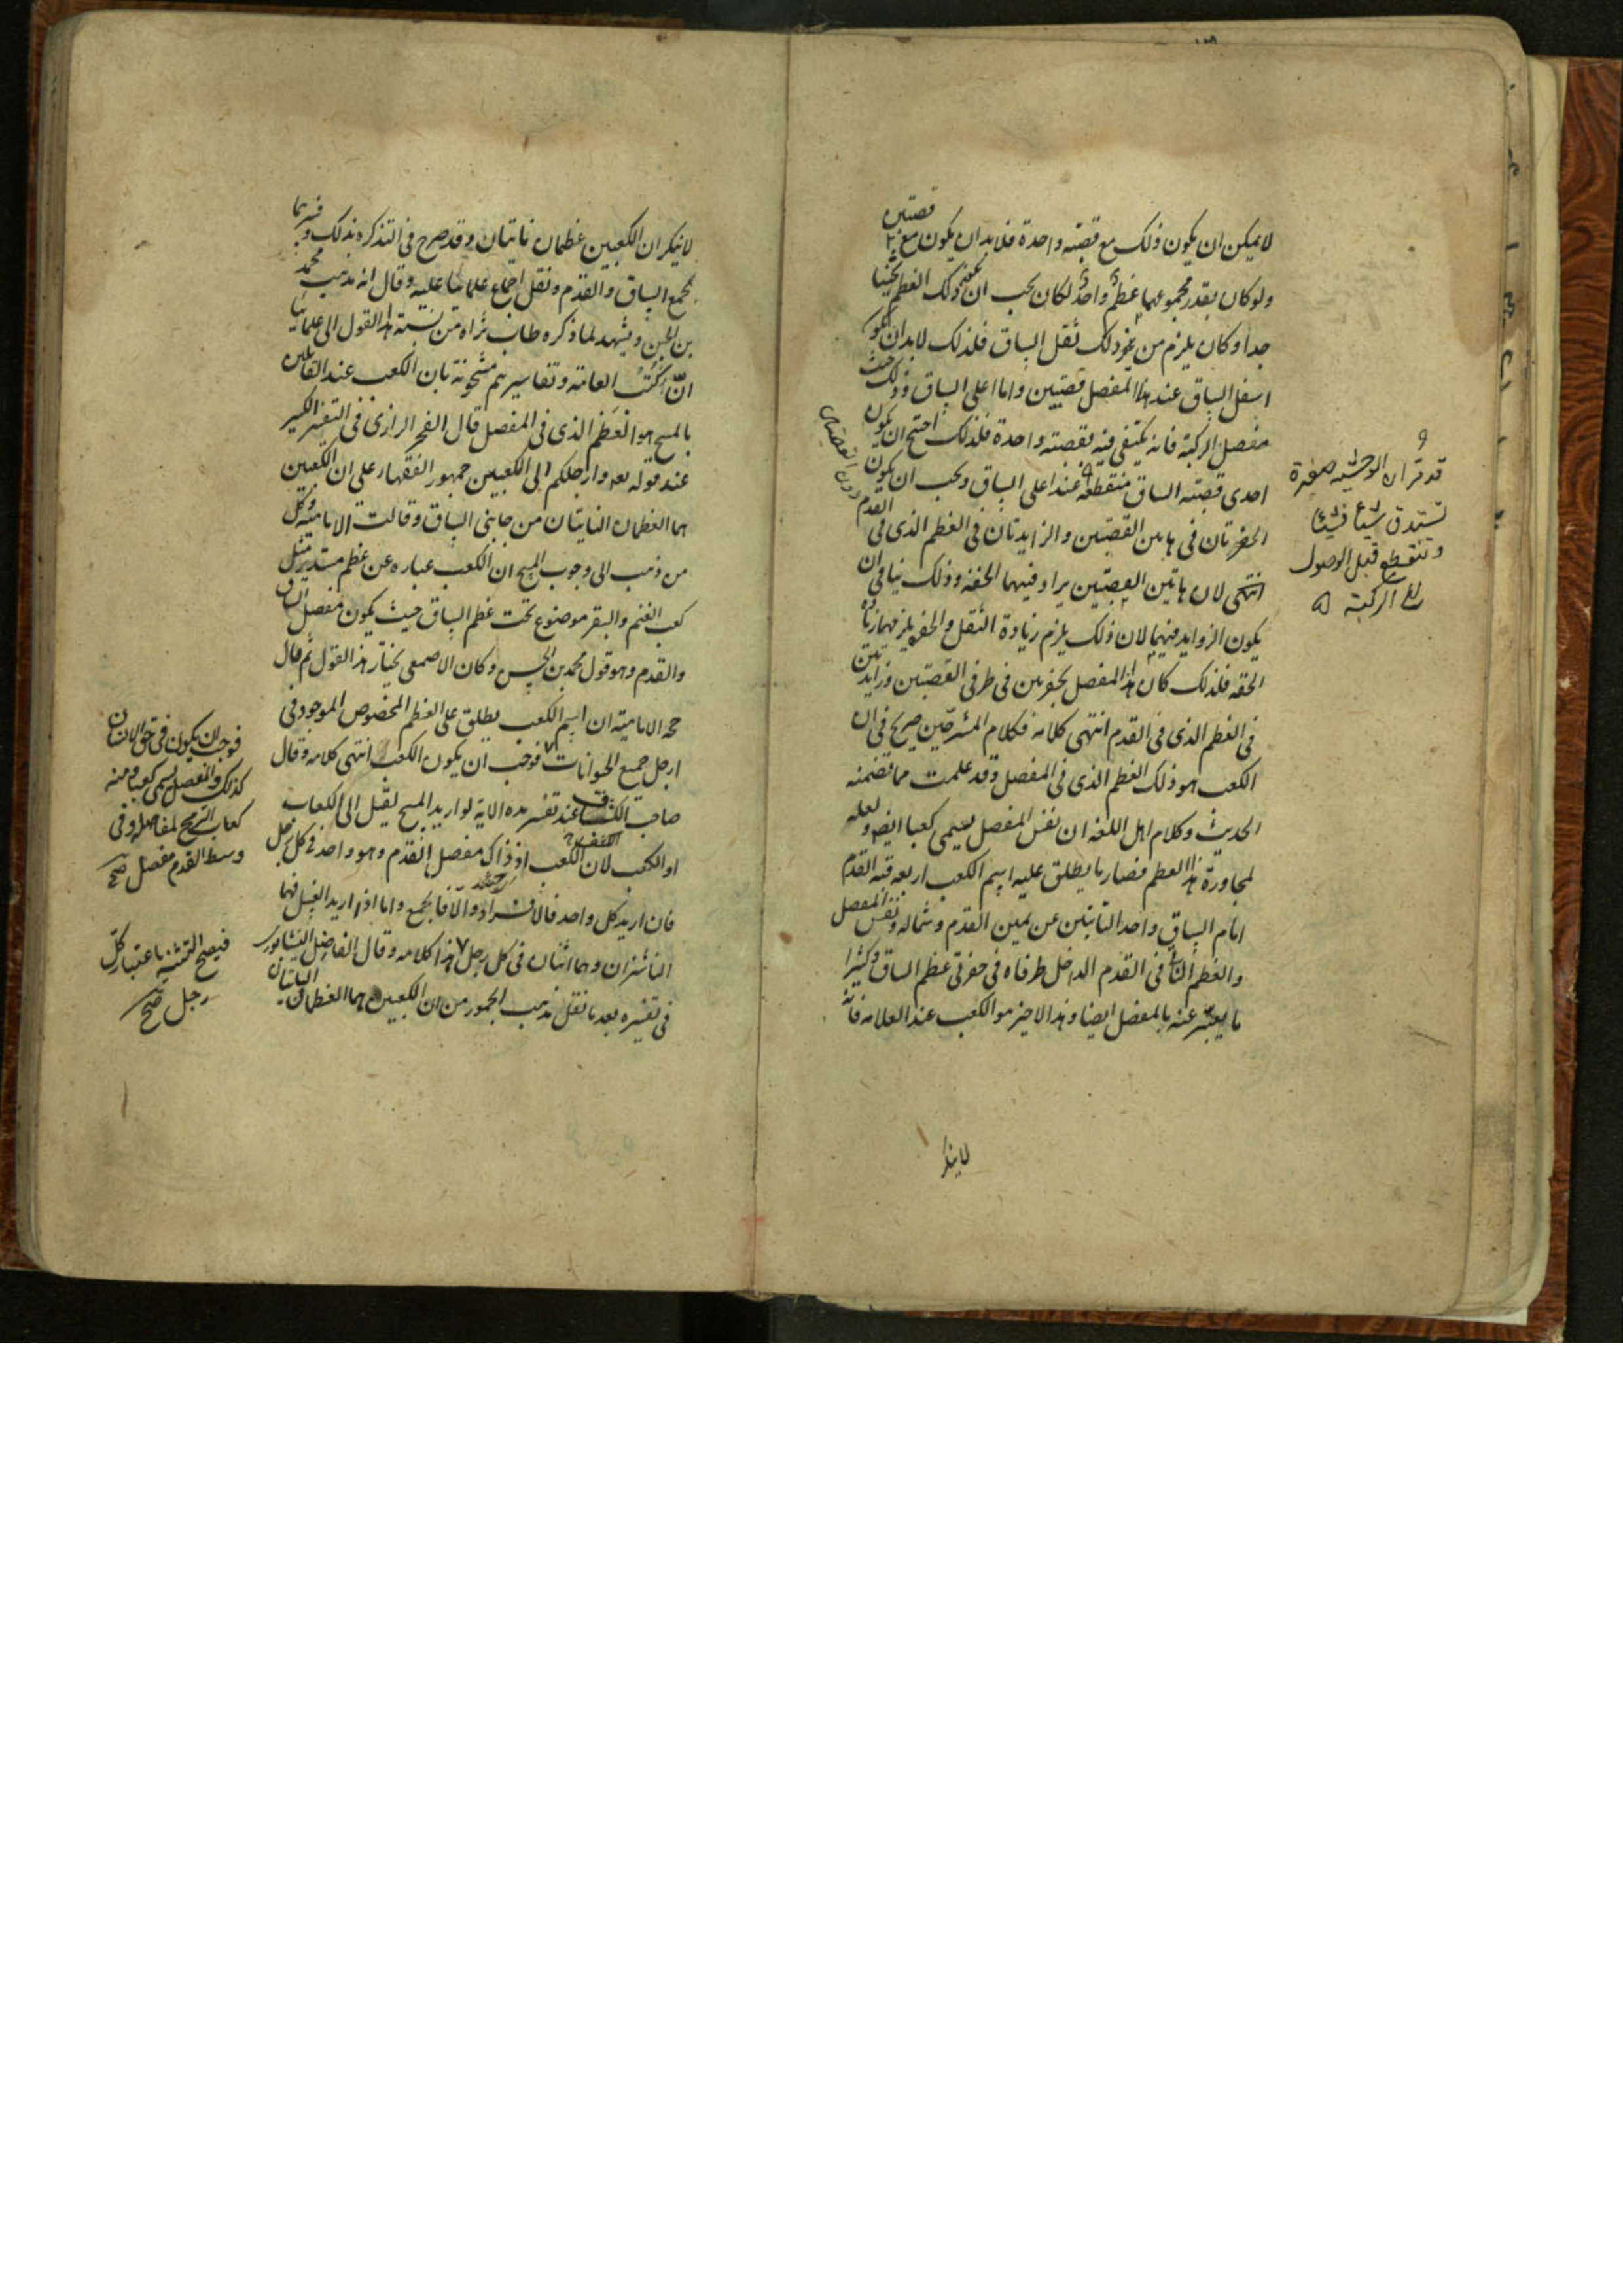 لا يمكن ان يكون ذلك مع قصبة واحدة فلا بد ان يكون مع قصبتين
ولو كان بقدر مجموعهما عظم واحد لكان يجب ان يكون ذلك العظم ثخينا
جدا وكان يلزم من ذلك ثقل الساق فلذلك لا بد ان يكون
اسفل الساق عند هذا المفصل قصبتين واما اعلى الساق وذلك حيث
مفصل الركبة فانه يكتفى فيه بقصبة واحدة فلذلك احتيج ان يكون
احدى قصبتى الساق منقطعة عند اعلى الساق ويجب ان يكون
الحفرتان فى هاتين القصبتين والزايدتان فى العظم الذى فى القدم
انتهى لان هاتين القصبتين يراد فيهما الخفة وذلك ينافى ان
يكون الزوايد فيهما لان ذلك يلزم زيادة الثقل والحفر يلزمها زيادة
الخفة فلذلك كان هذا المفصل بحفرتين فى طرفى القصبتين وزايدتين
فى العظم الذى فى القدم انتهى كلامه فكلام المشرحين صريح فى ان
الكعب هو ذلك العظم الذى فى المفصل وقد علمت مما تضمنه
الحديث وكلام اهل اللغة ان نفس المفصل يسمى كعبا ايضا ولعله
لمجاورة هذا العظم فصار ما يطلق عليه اسم الكعب اربعة قبة القدم
امام الساق واحد النابتين عن يمين القدم وشماله ونفس المفصل
والعظم الناتى فى القدم الداخل طرفاه فى حفرتى عظم الساق وكثيرا
ما يعبر عنه بالمفصل ايضا وهذا الاخير هو الكعب عند العلامة فانه
قد قرر ان الوحشية صغيرة
تستدق شيئا فشيئا
وتنقطع قبل الوصول
الى الركبة
لا ينكر
لا ينكر ان الكعبين عظمان ناتيان وقد صرح فى التذكرة بذلك وفسرهما
بمجمع الساق والقدم ونقل اجماع علمائنا عليه وقال انه مذهب محمد
بن الحسن ويشهد لما ذكره طاب ثراه من نسبة هذا القول الى علمائنا
ان كتب العامة وتفاسيرهم مشحونة بان الكعب عند القائلين
بالمسح هو العظم الذى فى المفصل قال الفخر الرازى فى التفسير الكبير
عند قوله تعه وارجلكم الى الكعبين جمهور الفقهاء على ان الكعبين
هما العظمان النابتان من جانبى الساق وقالت الامامية وكل
من ذهب الى وجوب المسح ان الكعب عبارة عن عظم مستدير مثل
كعب الغنم والبقر موضوع تحت عظم الساق حيث يكون مفصل الساق
والقدم وهو قول محمد بن الحسن وكان الاصمعى يختار هذا القول ثم قال
حجة الامامية ان اسم الكعب يطلق على العظم المخصوص الموجود فى
ارجل جميع الحيوانات فوجب ان يكون الكعب انتهى كلامه وقال
صاحب الكشاف عند تفسير هذه الاية لو اريد المسح لقيل الى الكعاب
او الكعب لان الكعب اذ ذاك مفصل القدم وهو واحد فى كل رجل
فان اريد كل واحد فالافراد والا فالجمع واما اذا اريد الغسل فهما
الناشزان وهما اثنان فى كل رجل هذا كلامه وقال الفاضل النيشابورى
فى تفسيره بعد ما نقل مذهب الجمهور من ان الكعبين هما العظمان الناتيان
فوجب ان يكون فى حق الانسان
كذلك والمفصل يسمى كعبا ومنه
كعاب الرمح لمفاصله وفى
وسط القدم مفصل صح
فيصح التثنية باعتبار كل
رجل صح